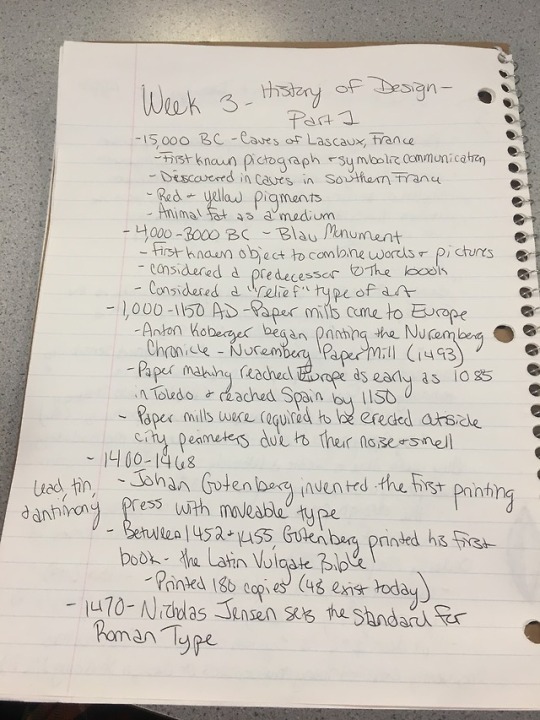 Week 3 - History of Design -
Part 1
- 15,000 BC - Caves of Lascaux, France
- First known pictograph + symbolic communication
- Discovered in caves in Southern France
- Red + yellow pigments
- Animal fat as a medium
- 4,000-3000 BC - Blau Monument
- First known object to combine words + pictures
- considered a predecessor to the book
- Considered a "relief" type of art
- 1,000-1150 AD - Paper mills came to Europe
- Anton Koberger began printing the Nuremberg
Chronicle - Nuremberg Paper Mill (1493)
- Paper making reached Europe as early as 1085
in Toledo + reached Spain by 1150
- Paper mills were required to be erected outside
city perimeters due to their noise + smell
- 1400-1468
- Johan Gutenberg invented the first printing
press with moveable type
lead, tin,
+ antimony
- Between 1452 + 1455, Gutenberg printed his first
book - the Latin Vulgate Bible
- Printed 180 copies (48 exist today)
- 1470 - Nicholas Jensen sets the standard for
Roman Type